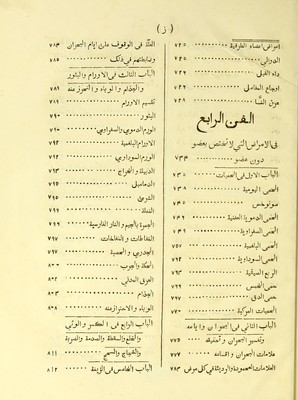 ( ز )
امراض اعضاء الطرفية ٧٢٥
الدوالى ٧٢٥
داء الفيل ٧٢٢
اوجاع المفاصل ٧٢٨
عرق النسا ٧٢٨
الفن الرابع
فى الامراض التى لا تختص بعضو
دون عضو ٧٣٤
الباب الاول فى الحميات ٧٣٥
الحمى اليومية ٧٣٨
سونوخس ٧٤٥
الحمى الدموية العفنية ٧٤٢
الحمى الصفراوية ٧٤٩
الحمى البلغمية ٧٥٧
الحمى السوداوية ٧٥٢
الربع
حمى الخمس
حمى الدق ٧٩٧
الحميات المركبة ٧٧٠
الباب الثانى فى البحران وايامه
وتفسير البحران و تحقيقه ٧٧٥
علامات البحران و اقسامه ٧٧٧
العلامات المحمودة والرديئة فى كل مرض ٧٨٣
العلة فى الوقوف على ايام البحران ٧٨٣
وضابطتهم فى ذلك ٧٨٥
الباب الثالث فى الاورام والبثور
والجذام والوباء والتحرز عنه ٧٨٩
تقسيم الاورام ٧٨٩
البثور ٧٩٠
الورم الدموى والصفراوى ٧٩٠
الاورام البلغمية ٧٩٢
الورم السوداوى ٧٩٢
الدبيلة و الخراج ٧٩٣
الدماميل ٧٩٥
الشرى ٧٩٥
النملة ٧٩٧
الجمرة بالجيم و النار الفارسية ٧٩٧
النفاطات و النفاخات ٧٩٧
الجدرى و الحصبة ٧٩٧
الحكة والجرب ٨٠٢
العرق المدنى ٨٠٢
الجذام ٨٠٣
الوباء و الاحتراز منه ٨٠٨
الباب الرابع فى الكسر و الوثى
والخلع والسقطة والصدمة والضربة
والشجاج والسحج ٨١١
الباب الخامس فى الزينة ٨١٢